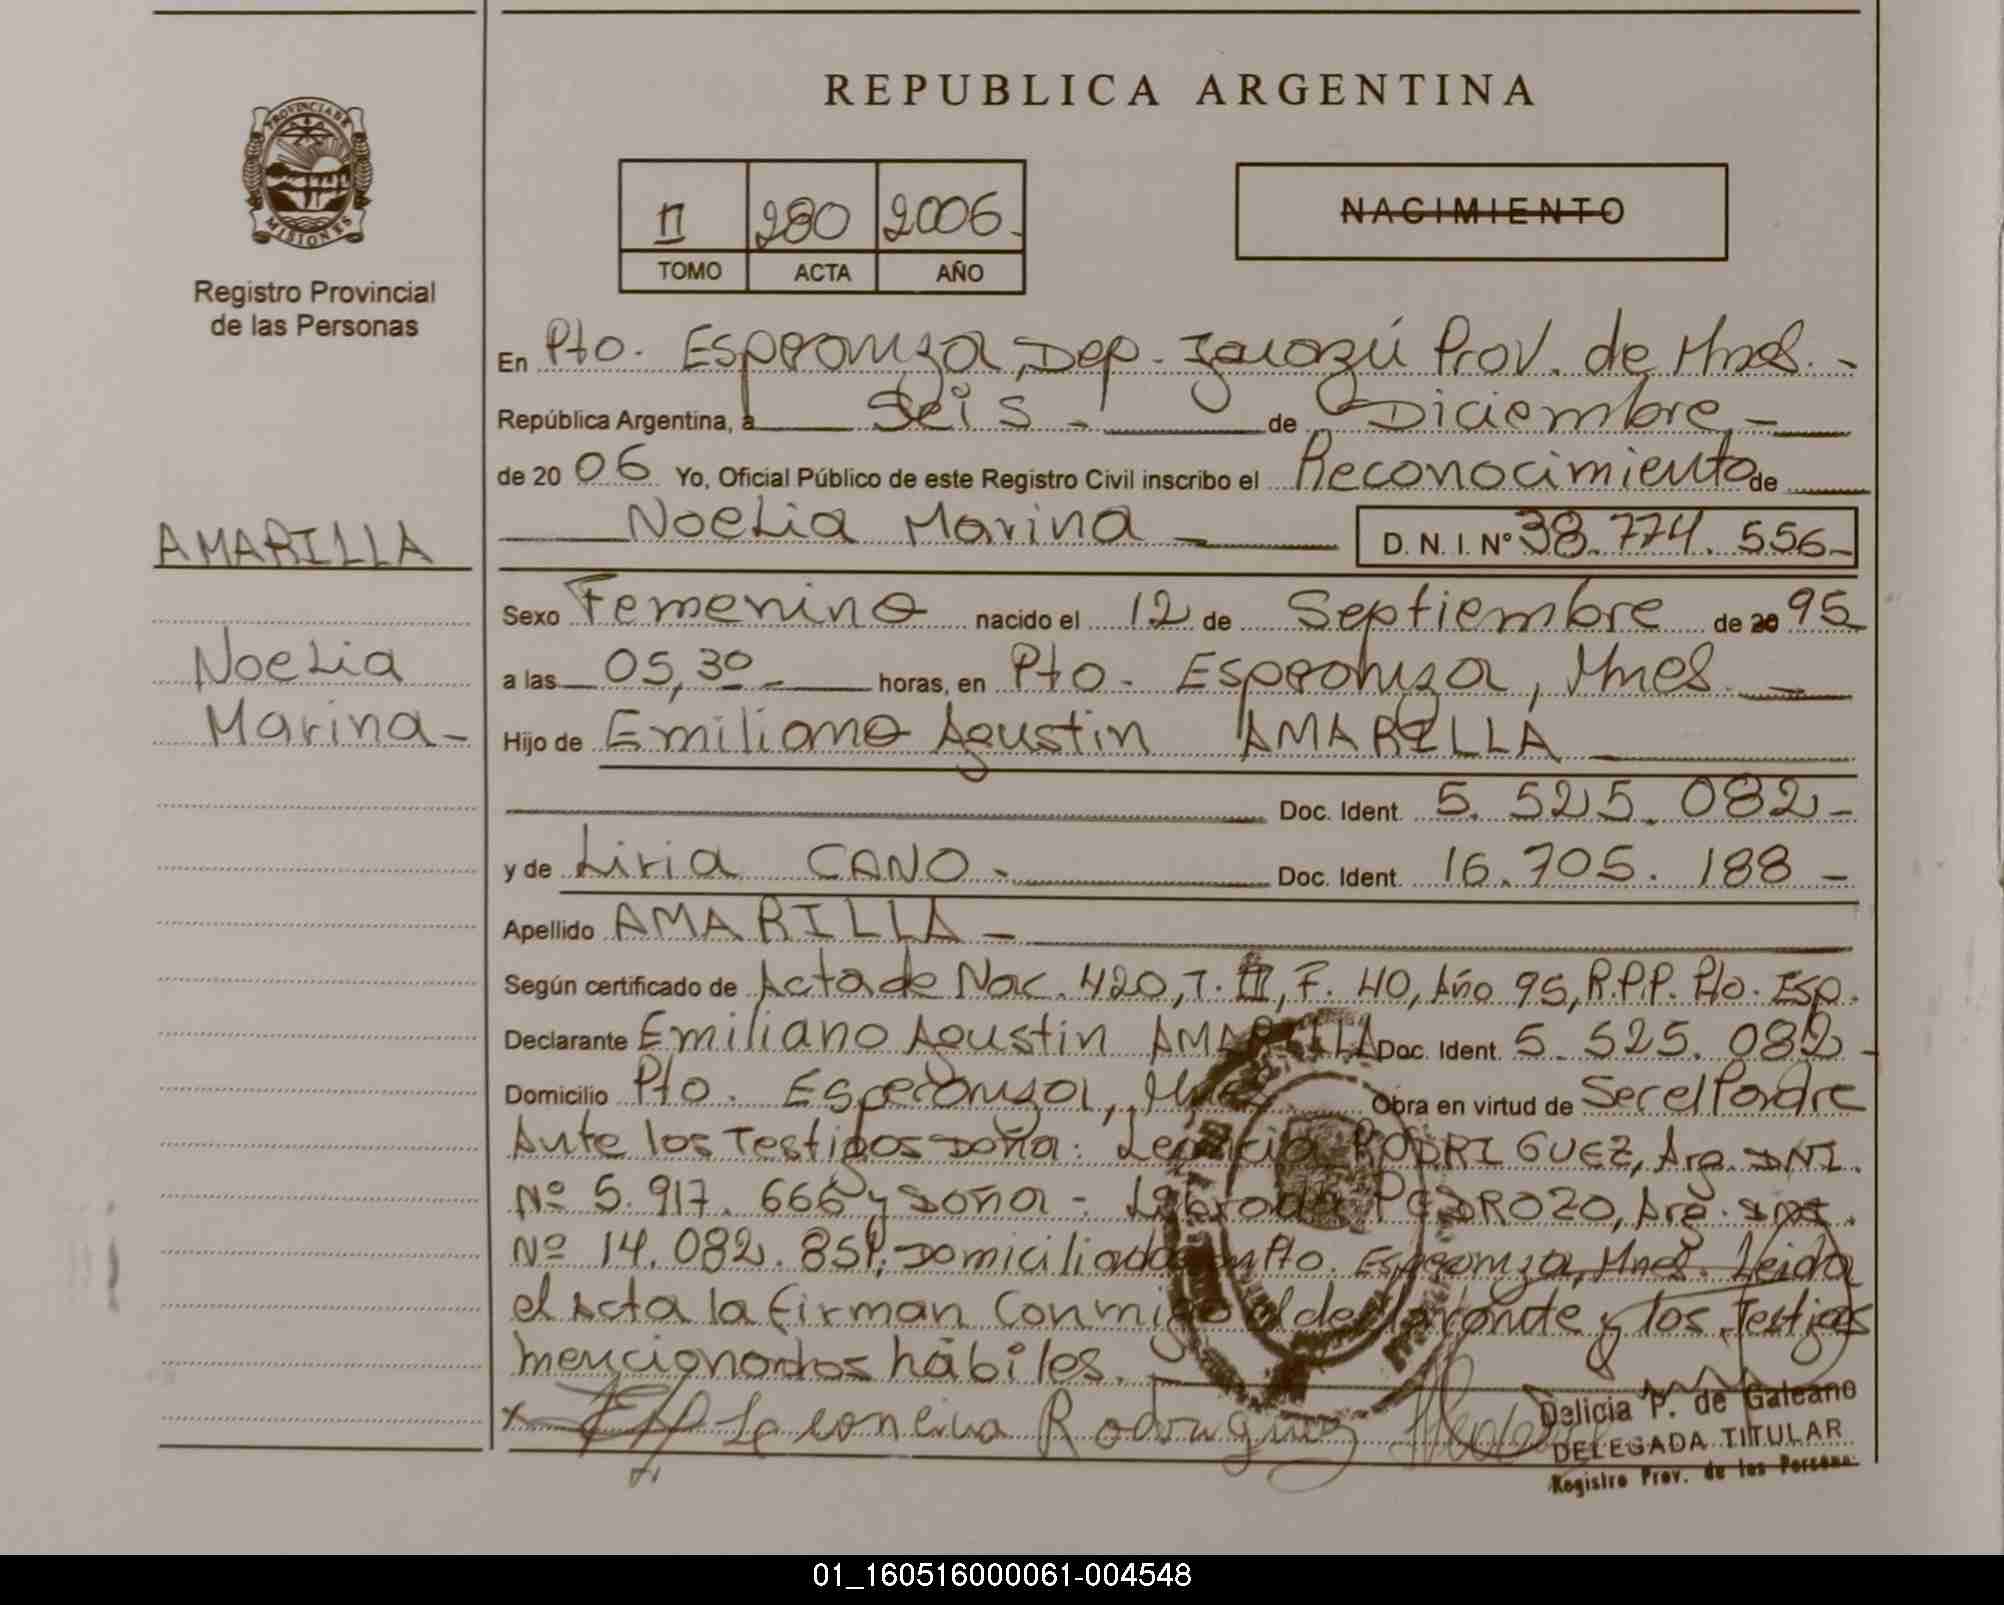 REPUBLICA ARGENTINA
PROVINCIA DE
MISIONES
Registro Provincial
de las Personas
II 280 2006.
TOMO ACTA AÑO
NACIMIENTO
En Pto. Esperanza, Dep. Iguazú Prov. de Mnes.-
República Argentina, a Seis - de Diciembre.-
de 2006 Yo, Oficial Público de este Registro Civil inscribo el Reconocimiento de
Noelia Marina - D. N. I. N° 38.774.556-
AMARILLA
Noelia
Marina-
Sexo Femenino nacido el 12 de Septiembre de 20 95
a las 05,30 - horas, en Pto. Esperanza, Mnes. -
Hijo de Emiliano Agustin AMARILLA
Doc. Ident. 5.525.082-
y de Liria CANO.- Doc. Ident. 16.705.188-
Apellido AMARILLA-
Según certificado de Acta de Nac. 420, T. III, F. 40, Año 95, R.P.P. Pto. Esp.
Declarante Emiliano Agustin AMARILLA Doc. Ident. 5.525.082-
Domicilio Pto. Esperanza, Mnes Obra en virtud de Ser el Padre
Ante los Testigos Doña: RODRIGUEZ, Arg. DNI.
Nº 5.917.666 y Doña - Librada PEDROZO, Arg. DNI.
Nº 14.082.851, Domiciliados en Pto. Esperanza, Mnes. Leida
el Acta la firman Conmigo el declarante y los Testigos
mencionados hábiles.
Rodriguez
Delicia P. de Galeano
DELEGADA TITULAR
Registro Prov. de las Personas
01_160516000061-004548